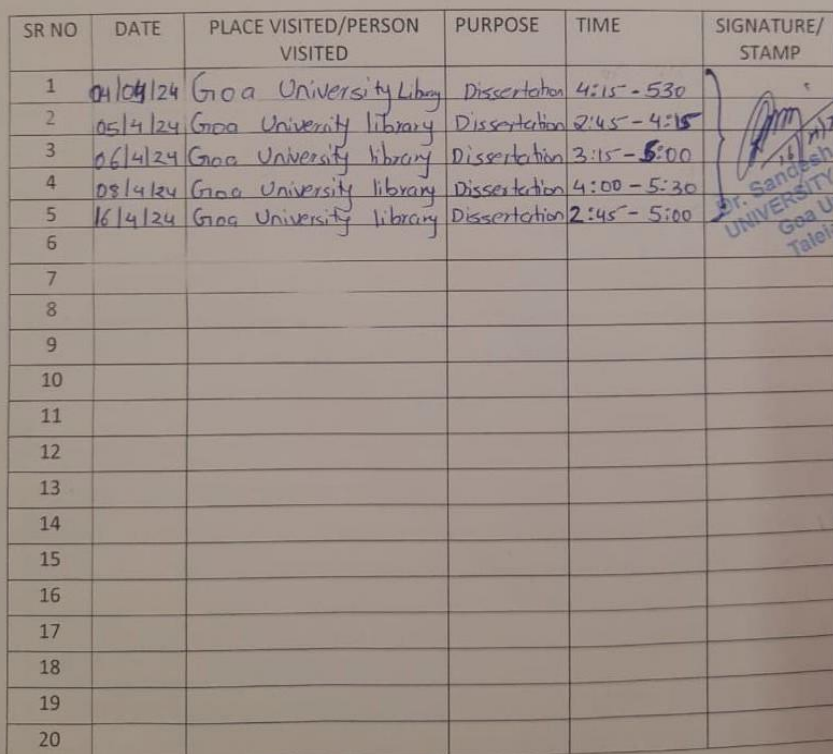 SR NO DATE PLACE VISITED/PERSON VISITED PURPOSE TIME SIGNATURE/ STAMP
1 04/04/24 Goa University Library Dissertation 4:15 - 530
2 05/4/24 Goa Univerity library Dissertation 2:45 - 4:15
3 06/4/24 Goa University library Dissertation 3:15 - 5:00
4 08/4/24 Goa University library Dissertation 4:00 - 5:30
5 16/4/24 Goa University library Dissertation 2:45 - 5:00
Dr. Sandesh
UNIVERSITY
Goa U
Talei
6
7
8
9
10
11
12
13
14
15
16
17
18
19
20